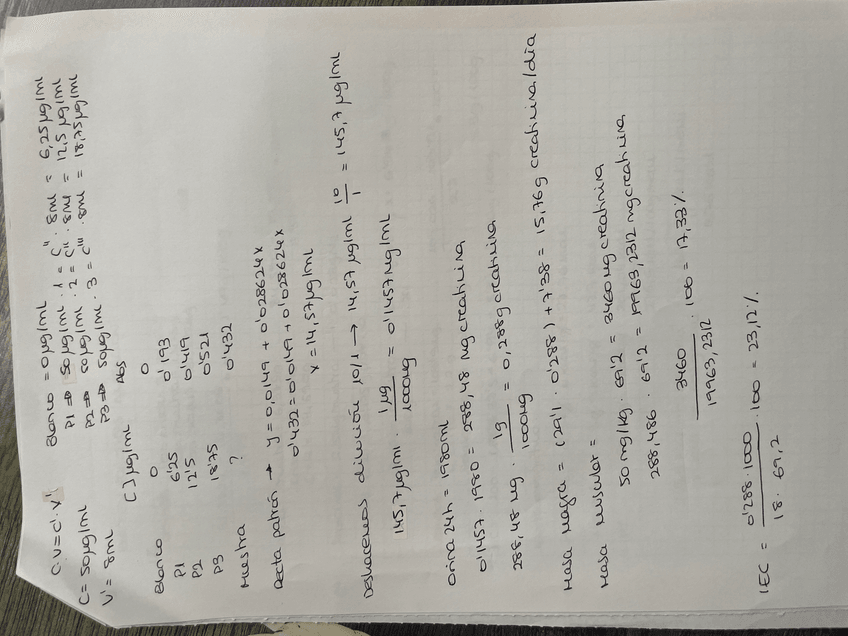 C·V = C'·V'
C = 50 µg/ml
V' = 8ml
Blanco = 0 µg/ml
P1 ⇒ 50 µg/ml · 1 = C'' · 8ml = 6,25 µg/ml
P2 ⇒ 50 µg/ml · 2 = C'' · 8ml = 12,5 µg/ml
P3 ⇒ 50 µg/ml · 3 = C''' · 8ml = 18,75 µg/ml
[ ] µg/ml Abs
Blanco 0 0
P1 6'25 0'193
P2 12'5 0'419
P3 18'75 0'521
Muestra ? 0'432
Recta patrón → y = 0,0149 + 0'028624x
0'432 = 0'0149 + 0'028624x
x = 14,57 µg/ml
Deshacemos dilución 10/1 → 14,57 µg/ml 10/1 = 145,7 µg/ml
145,7 µg/ml · 1 µg/1000 µg = 0'1457 µg/ml
Orina 24h = 1980ml
0'1457 · 1980 = 288,48 mg creatinina
288,48 mg · 1g/1000mg = 0,288g creatinina
Masa magra = (29'1 · 0'288) + 7'38 = 15,76 g creatinina/día
Masa muscular =
50 mg/kg · 69'2 = 3460 mg creatinina
288,486 · 69'2 = 19963,2312 mg creatinina
3460/19963,2312 · 100 = 17,33%
IEC = 0'288·1000/18·69,2 · 100 = 23,12%